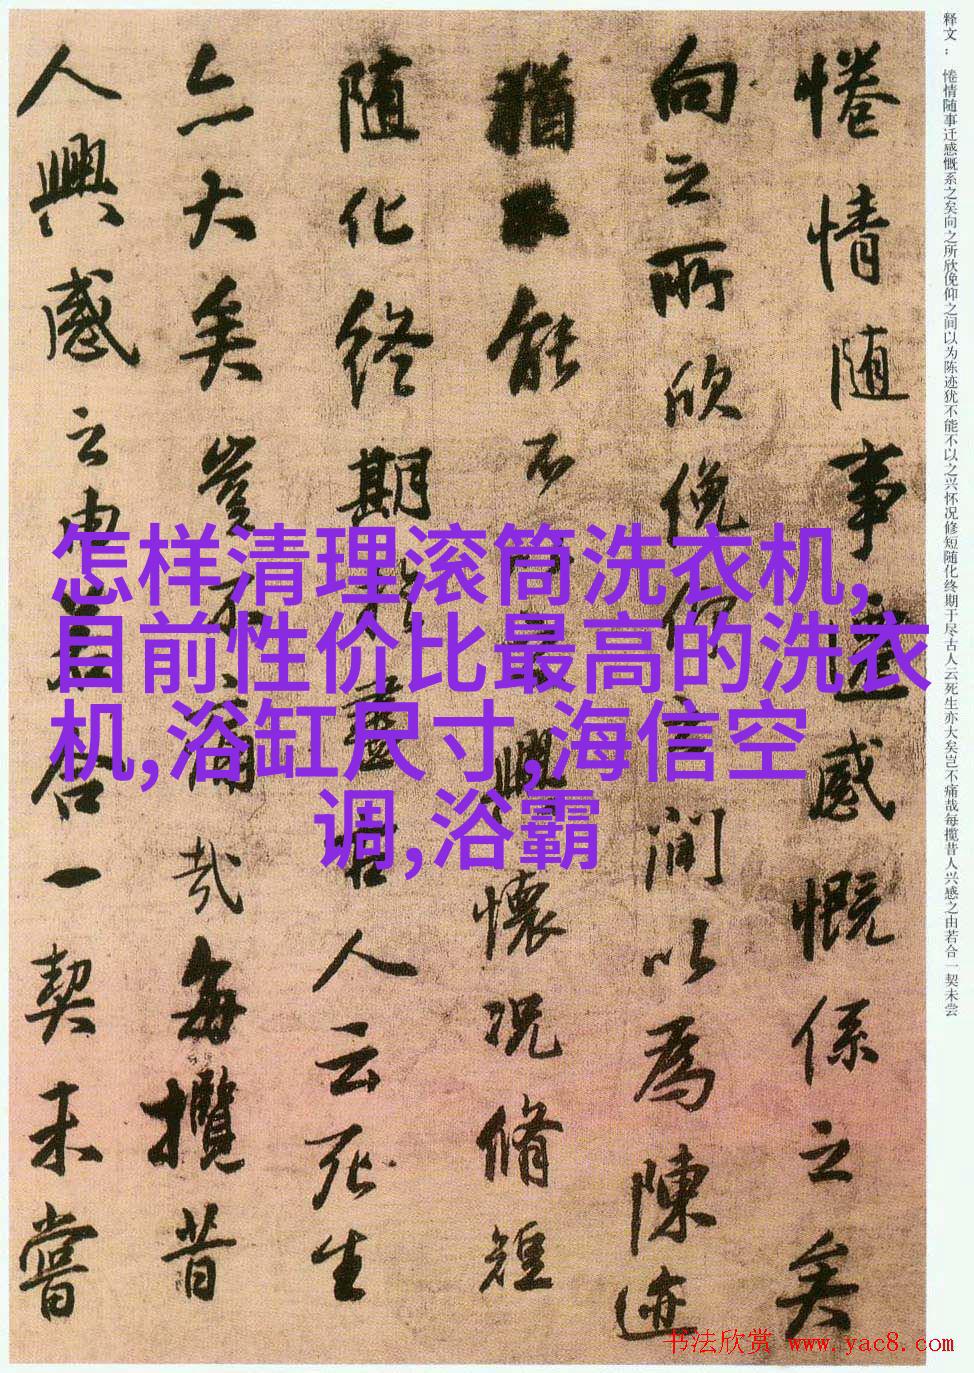 释文：惓情随事迁感慨系之矣向之所欣俛仰之间以为陈迹犹不能不以之兴怀况修短随化终期于尽古人云死生亦大矣岂不痛哉每揽昔人兴感之由若合一契未尝
惓情随事遷感慨係之矣
向之所欣俛仰之間以為陳迹
猶不能不以之興懷況脩短
随化終期於盡古人云死生
亦大矣豈不痛哉每攬昔
人興感之由若合一契未嘗
怎样清理滚筒洗衣机,
目前性价比最高的洗衣
机,浴缸尺寸,海信空
调,浴霸
书法欣赏 www.yac8.com